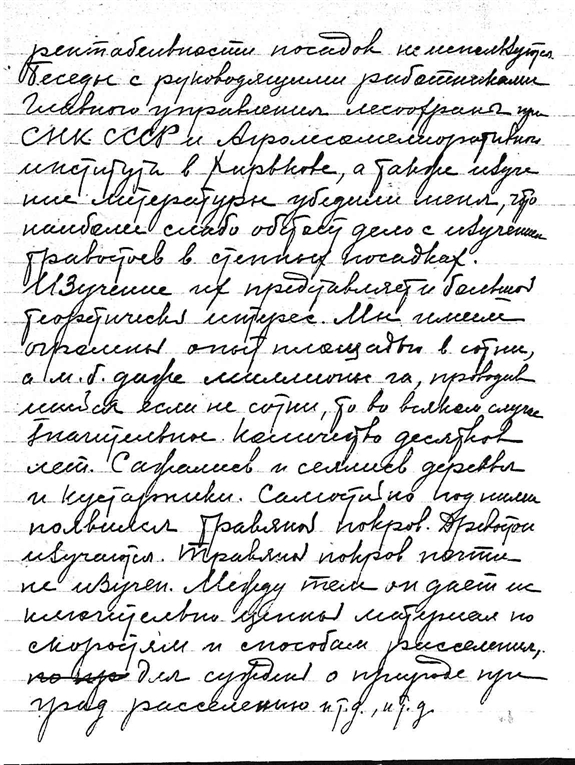 рентабельности посадок не используются.
Беседы с руководящими работниками
Главного управления лесоохраны при
СНК СССР и Агролесомелиоративном
институте в Харькове, а также изуче
ние литературы убедили меня, что
наиболее слабо обстоит дело с изучением
травостоев в степных посадках.
Изучение их представляет и большой
теоретический интерес. Мы имеем
огромный опыт площадью в сотни,
а м.б. даже миллионы га, проводив
шийся если не сотни, то во всяком случае
значительное количество десятков
лет. Сажались и сеялись деревья
и кустарники. Самостийно под ними
появился травяной покров. Древостои
изучаются. Травяной покров почти
не изучен. Между тем он дает ис
ключительно ценный материал по
скоростям и способам расселения,
для суждения о природе при
град расселению и т.д., и т.д.